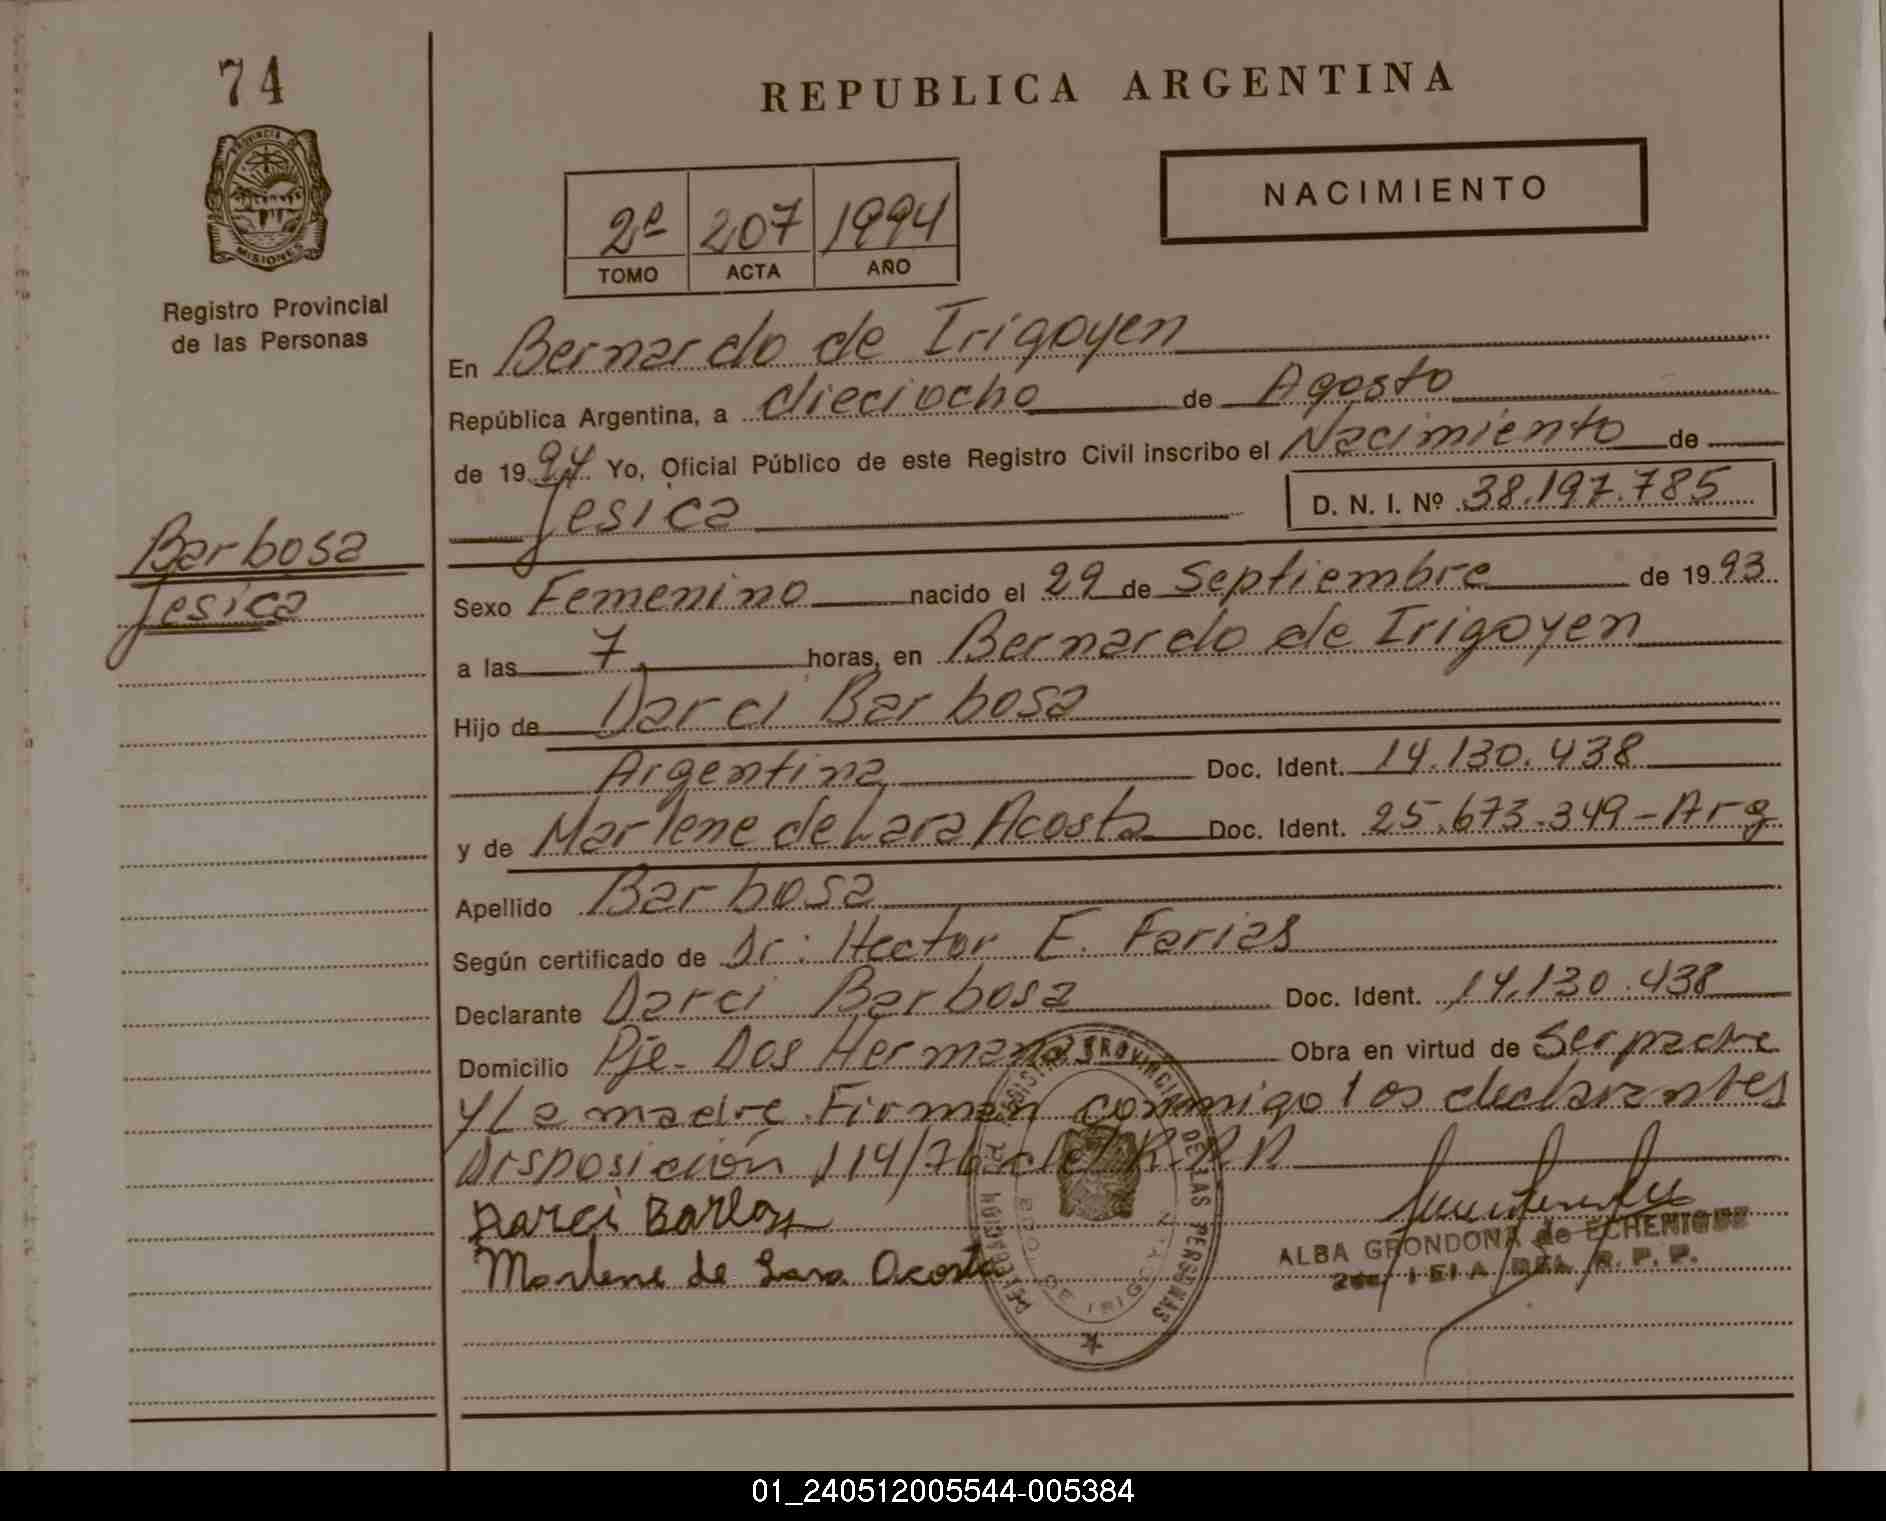 74
PROVINCIA DE
MISIONES
Registro Provincial
de las Personas
Barbosa
Jesica
REPUBLICA ARGENTINA
NACIMIENTO
2º 207 1994
TOMO ACTA AÑO
En Bernardo de Irigoyen
República Argentina, a dieciocho de Agosto
de 1994. Yo, Oficial Público de este Registro Civil inscribo el Nacimiento de
Jesica D. N. I. Nº 38.197.785
Sexo Femenino nacido el 29 de Septiembre de 1993
a las 7, horas, en Bernardo de Irigoyen
Hijo de Darci Barbosa
Argentina Doc. Ident. 14.130.438
y de Marlene de Lara Acosta Doc. Ident. 25.673.349-Arg
Apellido Barbosa
Según certificado de Dr: Hector E. Farias
Declarante Darci Barbosa Doc. Ident. 14.130.438
Domicilio Pje. Dos Hermanas Obra en virtud de Ser padre
y La madre. Firman conmigo los declarantes
Disposición 114/76 del R.P.P
Darci Barbosa
Marlene de Lara Acosta
ALBA GRONDONA de ECHENIQUE
DEL R. P. P.
REGISTRO PROVINCIAL DE LAS PERSONAS
DE IRIGOYEN
01_240512005544-005384